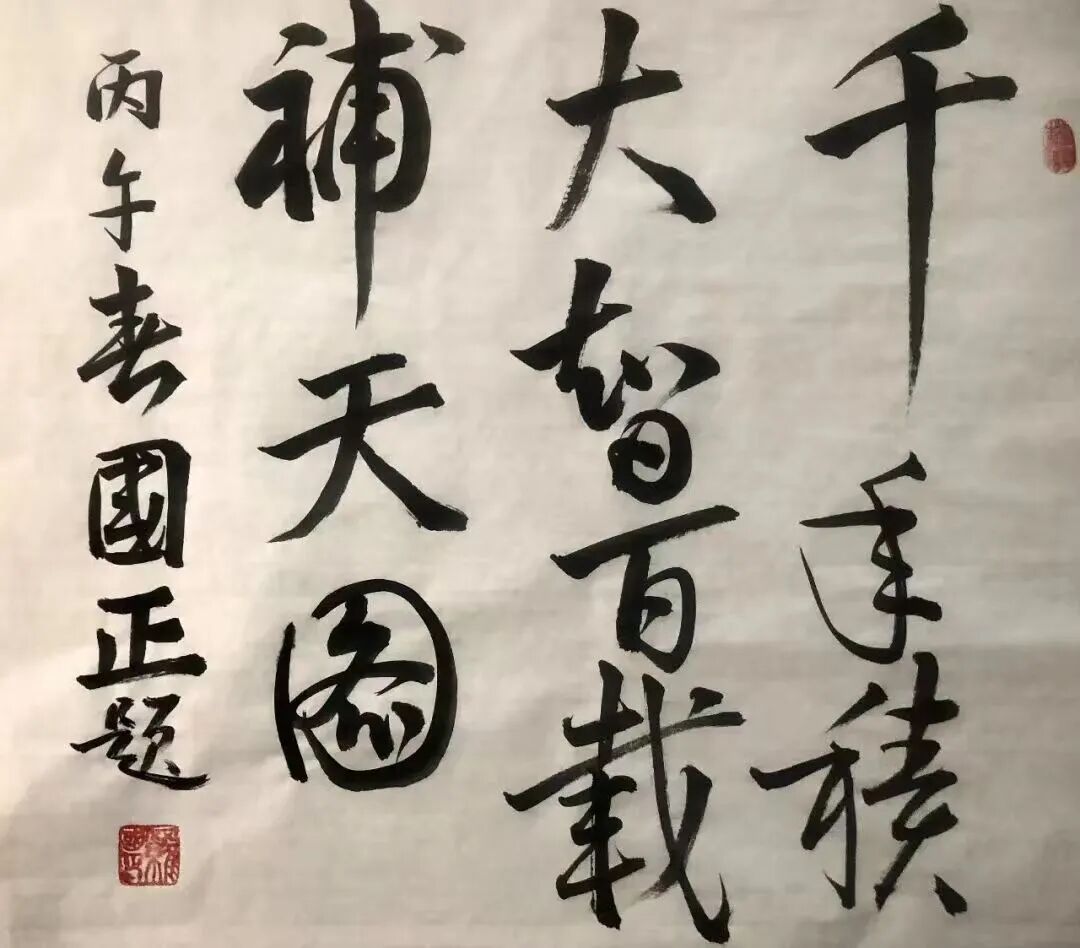 千年積
大智百載
補天圖
丙午春國正題